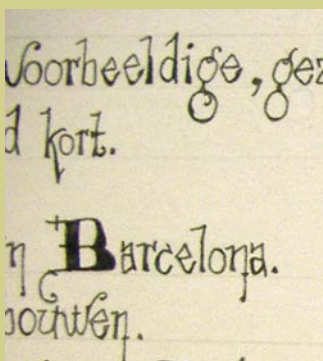 voorbeeldige, gez
d kort.
n Barcelona.
ouwen.